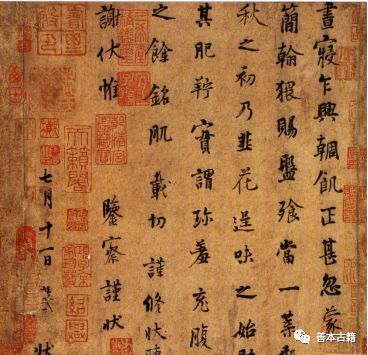 晝寢乍興輖飢正甚忽蒙
簡翰猥賜盤飧當一葉
秋之初乃韭花逞味之始助
其肥羜實謂珍羞充腹
之餘銘肌載切謹修狀陳
謝伏惟
鑒察謹狀
七月十一日 狀
天籟閣
善本古籍